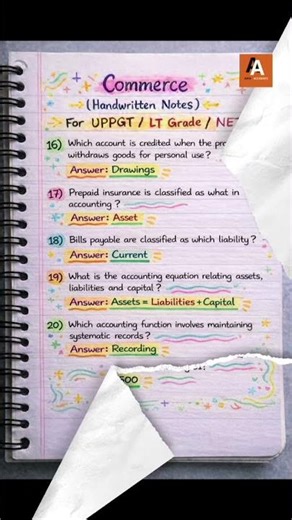 Commerce
(Handwritten Notes)
For UPPGT / LT Grade / NE
16) Which account is credited when the
withdraws goods for personal use?
Answer: Drawings
17) Prepaid insurance is classified as what in
accounting?
Answer: Asset
18) Bills payable are classified as which liability?
Answer: Current
19) What is the accounting equation relating assets,
liabilities and capital?
Answer: Assets = Liabilities + Capital
20) Which accounting function involves maintaining
systematic records?
Answer: Recording
500